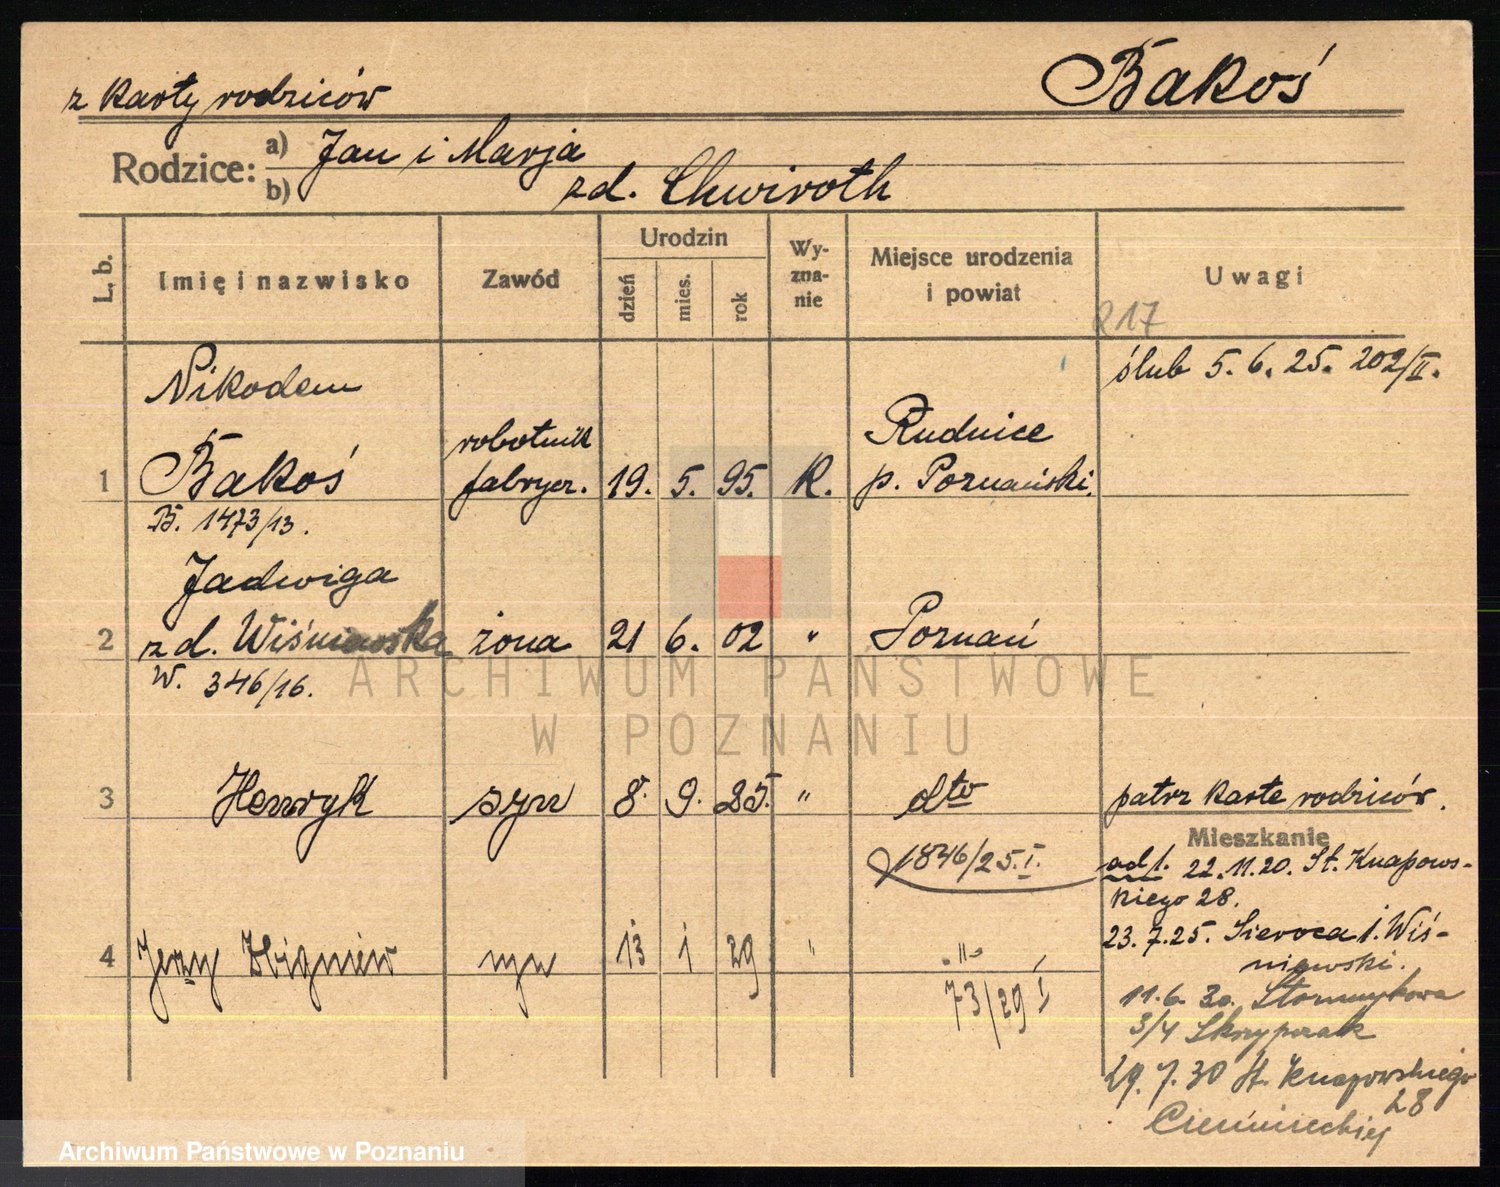 z karty rodziców
Bakoś
Rodzice:
a) Jan i Marja
b) zd. Chwiroth
L. b.
Imię i nazwisko
Zawód
Urodzin
dzień
mies.
rok
Wy-
zna-
nie
Miejsce urodzenia
i powiat
Uwagi
217
ślub 5. 6. 25. 202/II.
Nikodem
1 Bakoś robotnik fabrycz. 19. 5. 95. K. Rudnice p. Poznański.
B. 1473/13.
Jadwiga
2 zd. Wiśniewska żona 21 6. 02 " Poznań
W. 346/16.
3 Henryk syn 8. 9. 25. " dto patrz karte rodziców.
1846/25.I.
Mieszkanie
ad 1. 22.11.20. St. Knapows-
kiego 28.
4 Jerzy Zbigniew syn 13 1 29 " "
73/29 I
23. 7. 25. Sieroca 1. Wiś-
niewski.
11.6. 30.
3/4 Skrzypczak
29. 7. 30 St. Knapowskiego
28
ARCHIWUM PAŃSTWOWE
W POZNANIU
Archiwum Państwowe w Poznaniu